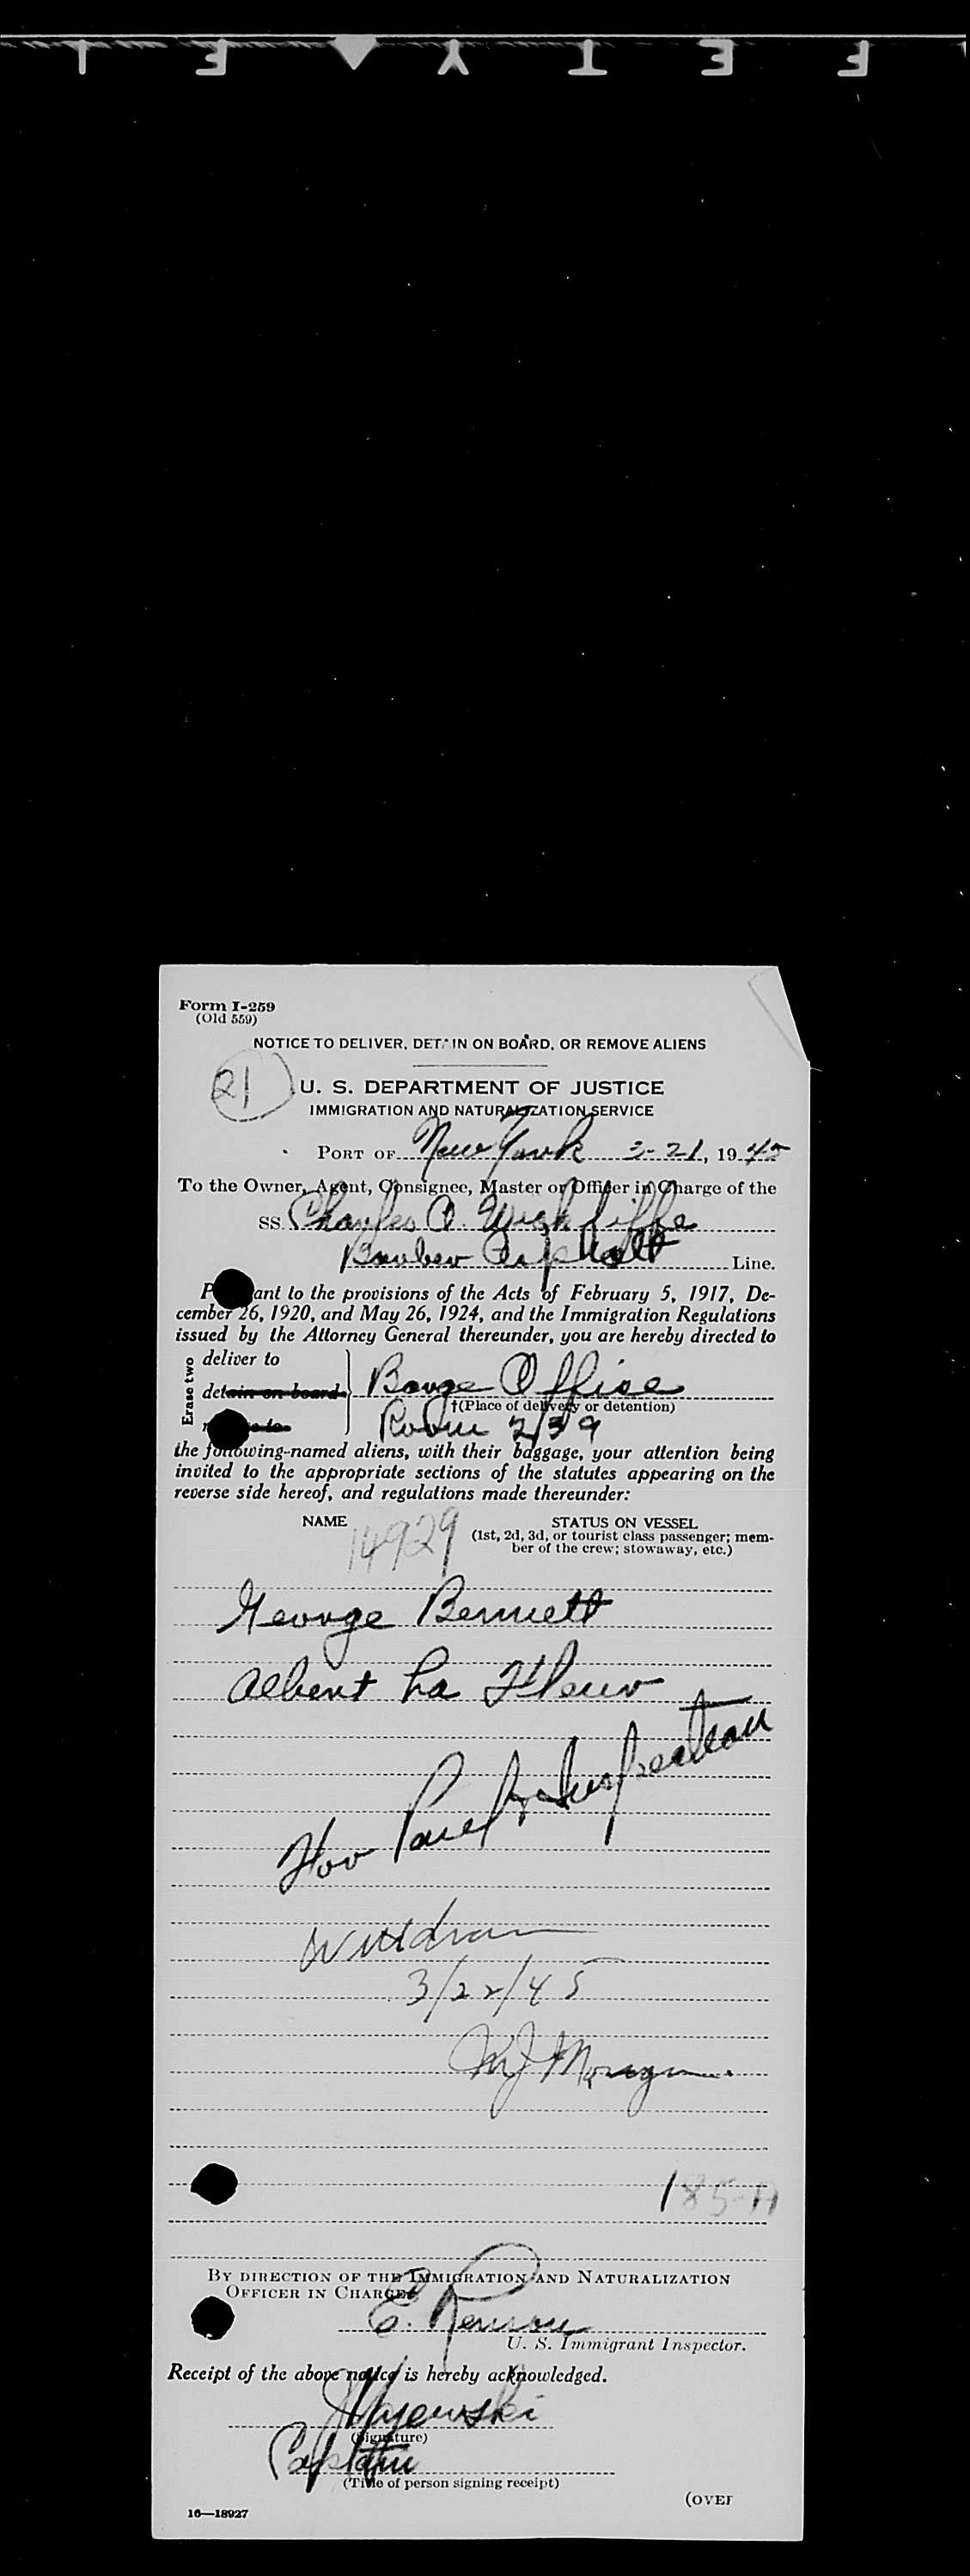 Form I-259
(Old 559)
NOTICE TO DELIVER, DETAIN ON BOARD, OR REMOVE ALIENS
21
U. S. DEPARTMENT OF JUSTICE
IMMIGRATION AND NATURALIZATION SERVICE
PORT OF New York 3-21, 1945
To the Owner, Agent, Consignee, Master or Officer in Charge of the
SS. Charles A. Wickliffe
Barber Asphalt Line.
P ant to the provisions of the Acts of February 5, 1917, De-
cember 26, 1920, and May 26, 1924, and the Immigration Regulations
issued by the Attorney General thereunder, you are hereby directed to
Erase two
deliver to
detain on board
Barge Office
†(Place of delivery or detention)
Room 239
the following-named aliens, with their baggage, your attention being
invited to the appropriate sections of the statutes appearing on the
reverse side hereof, and regulations made thereunder:
NAME
STATUS ON VESSEL
(1st, 2d, 3d, or tourist class passenger; mem-
ber of the crew; stowaway, etc.)
14929
George Bennett
Albert La Fleur
For Inspection
Withdrawn
3/22/45
185-A
BY DIRECTION OF THE IMMIGRATION AND NATURALIZATION
OFFICER IN CHARGE
E.
U. S. Immigrant Inspector.
Receipt of the above notice is hereby acknowledged.
Majewski
(Signature)
Captain
(Title of person signing receipt)
(OVER
16—18927